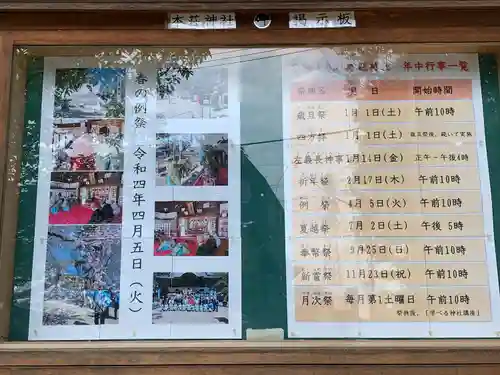 本荘神社
掲示板
春の例祭 令和四年四月五日(火)
年中行事一覧
祭典
月日
開始時間
歳旦祭 1月1日(土) 午前10時
四方祭 1月1日(土) 歳旦祭後、続いて実施
左義長神事 1月14日(金) 正午~午後4時
祈年祭 2月17日(木) 午前10時
例祭 4月5日(火) 午前10時
夏越祭 7月2日(土) 午後5時
奉幣祭 9月25日(日) 午前10時
新嘗祭 11月23日(祝) 午前10時
月次祭 毎月第1土曜日 午前10時
祭典後、「学べる神社講座」